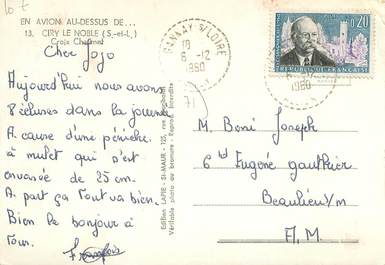 EN AVION AU-DESSUS DE...
13. CIRY LE NOBLE (S.-et-L.)
Croix Chalmet
10 F
Cher Jojo
Aujourd'hui nous avons
8 écluses dans la journée
A cause d'une péniche
à mulet qui s'est
envasée de 25 cm.
A part ça Tout va bien.
Bien le bonjour à
Tous.
François
Edition LAPIE - St-MAUR - 125, rue
Véritable photo au bromure - Reprod. Interdite
71
GANNAY S/LOIRE
18
6-12
1960
0,20
REPUBLIQUE FRANÇAISE
1960
M. Boni Joseph
6 bd Eugène gauthier
Beaulieu s/m
A. M.